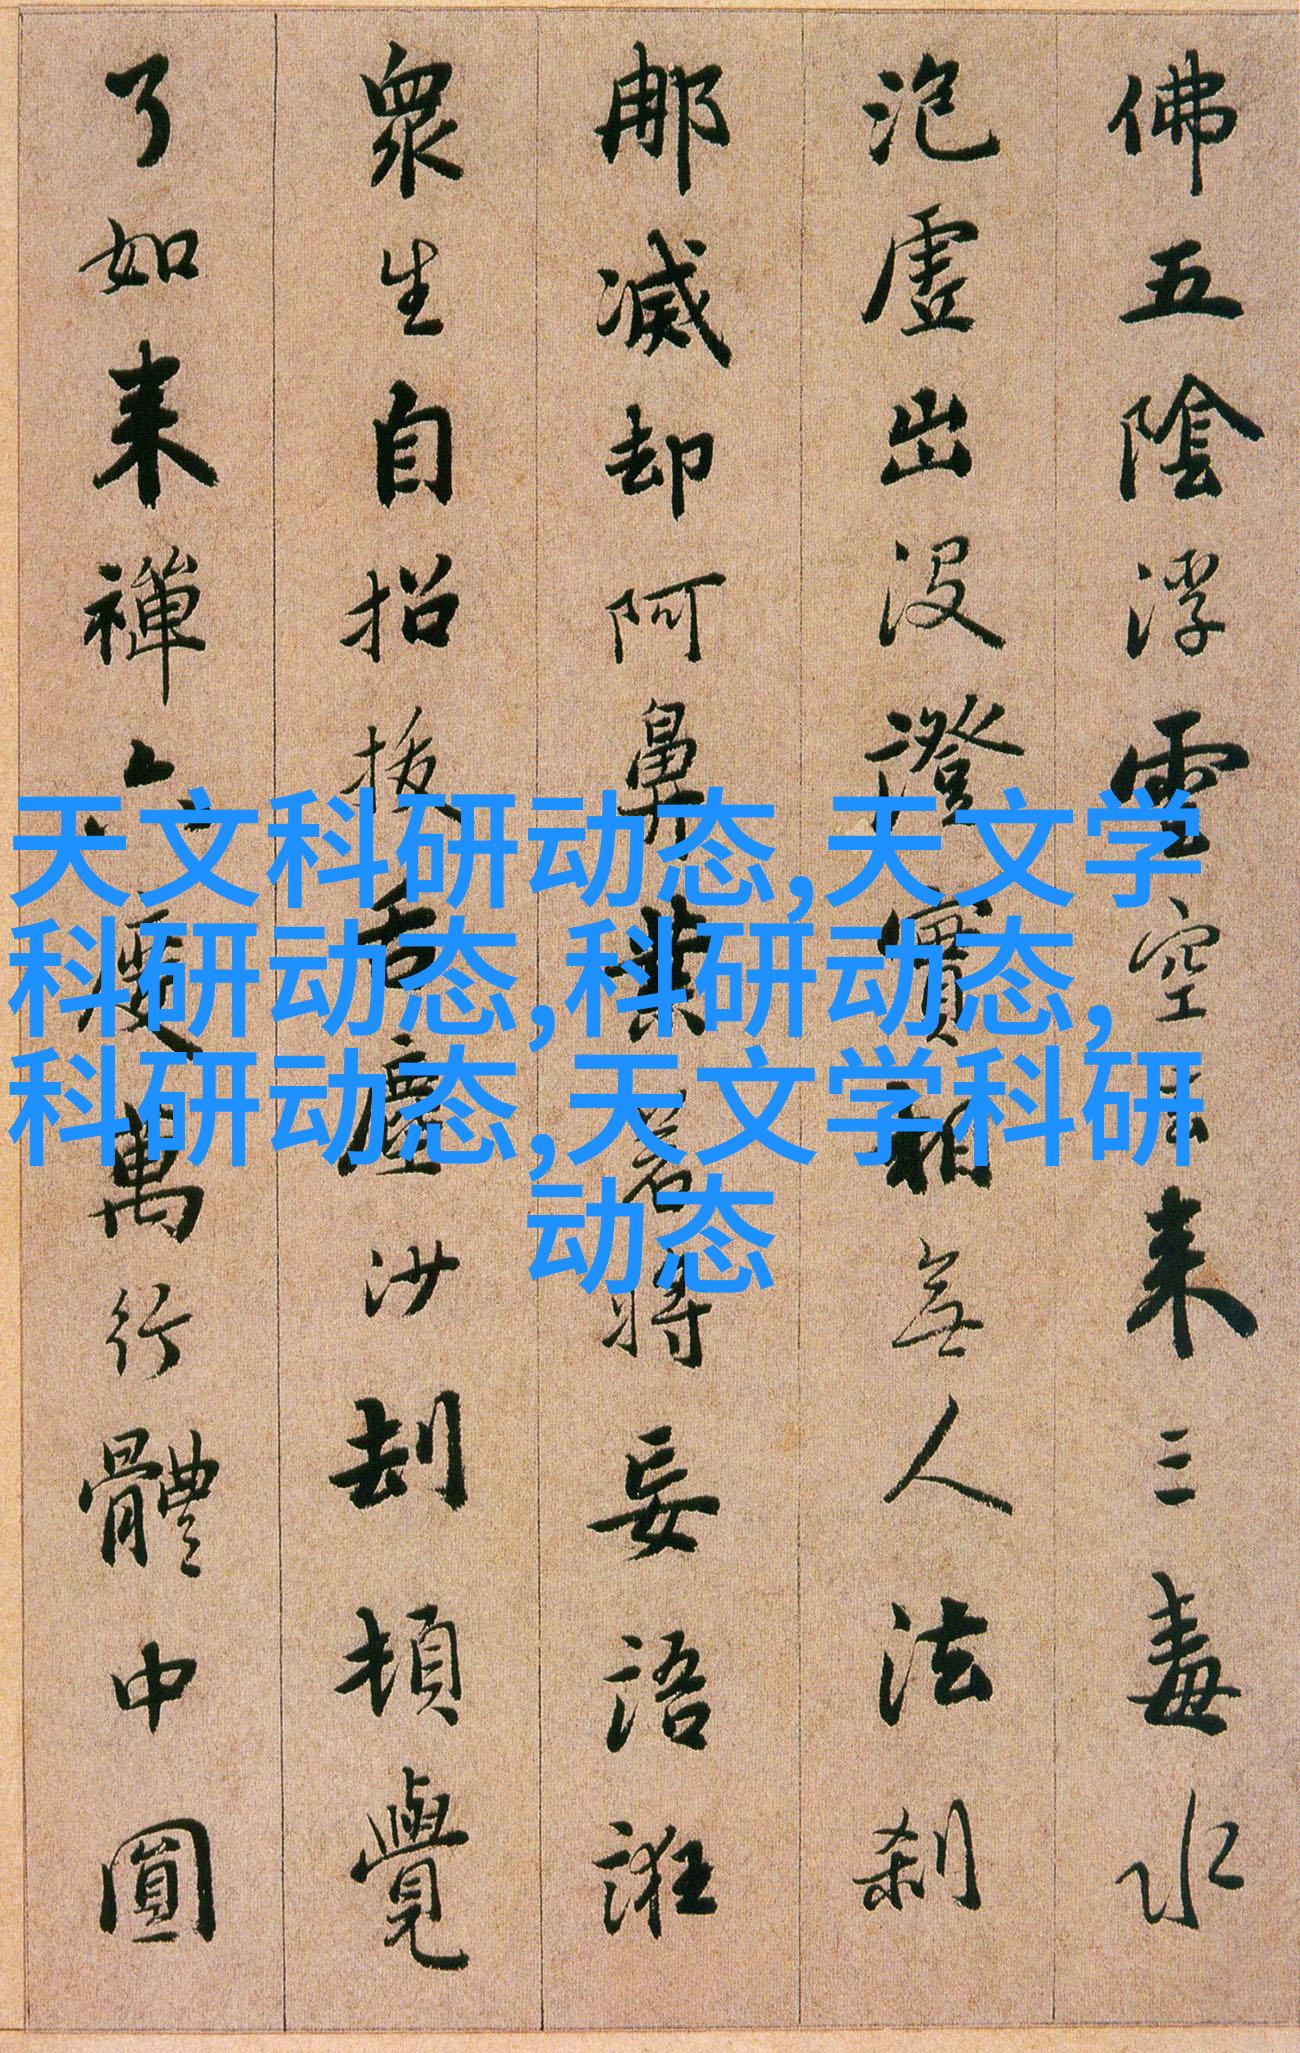 佛五陰浮雲空去来三毒水
泡虛出没證實相無人法刹
那滅却阿鼻業若將妄語誑
衆生自招拔舌塵沙劫頓覺
了如来禪六度萬行體中圓
天文科研动态,天文学
科研动态,科研动态,
科研动态,天文学科研
动态